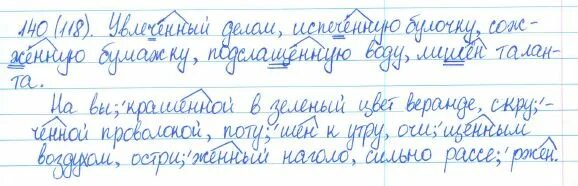 140 (118). Увлечённый делом, испечённую булочку, сож-
жённую бумажку, подслащённую воду, лишён талан-
та.
На вы;'крашенной в зеленый цвет веранде, скру;'-
ченной проволокой, поту;'шен к утру, очи;'щенным
воздухом, остри;'женный наголо, сильно рассе;'ржен.